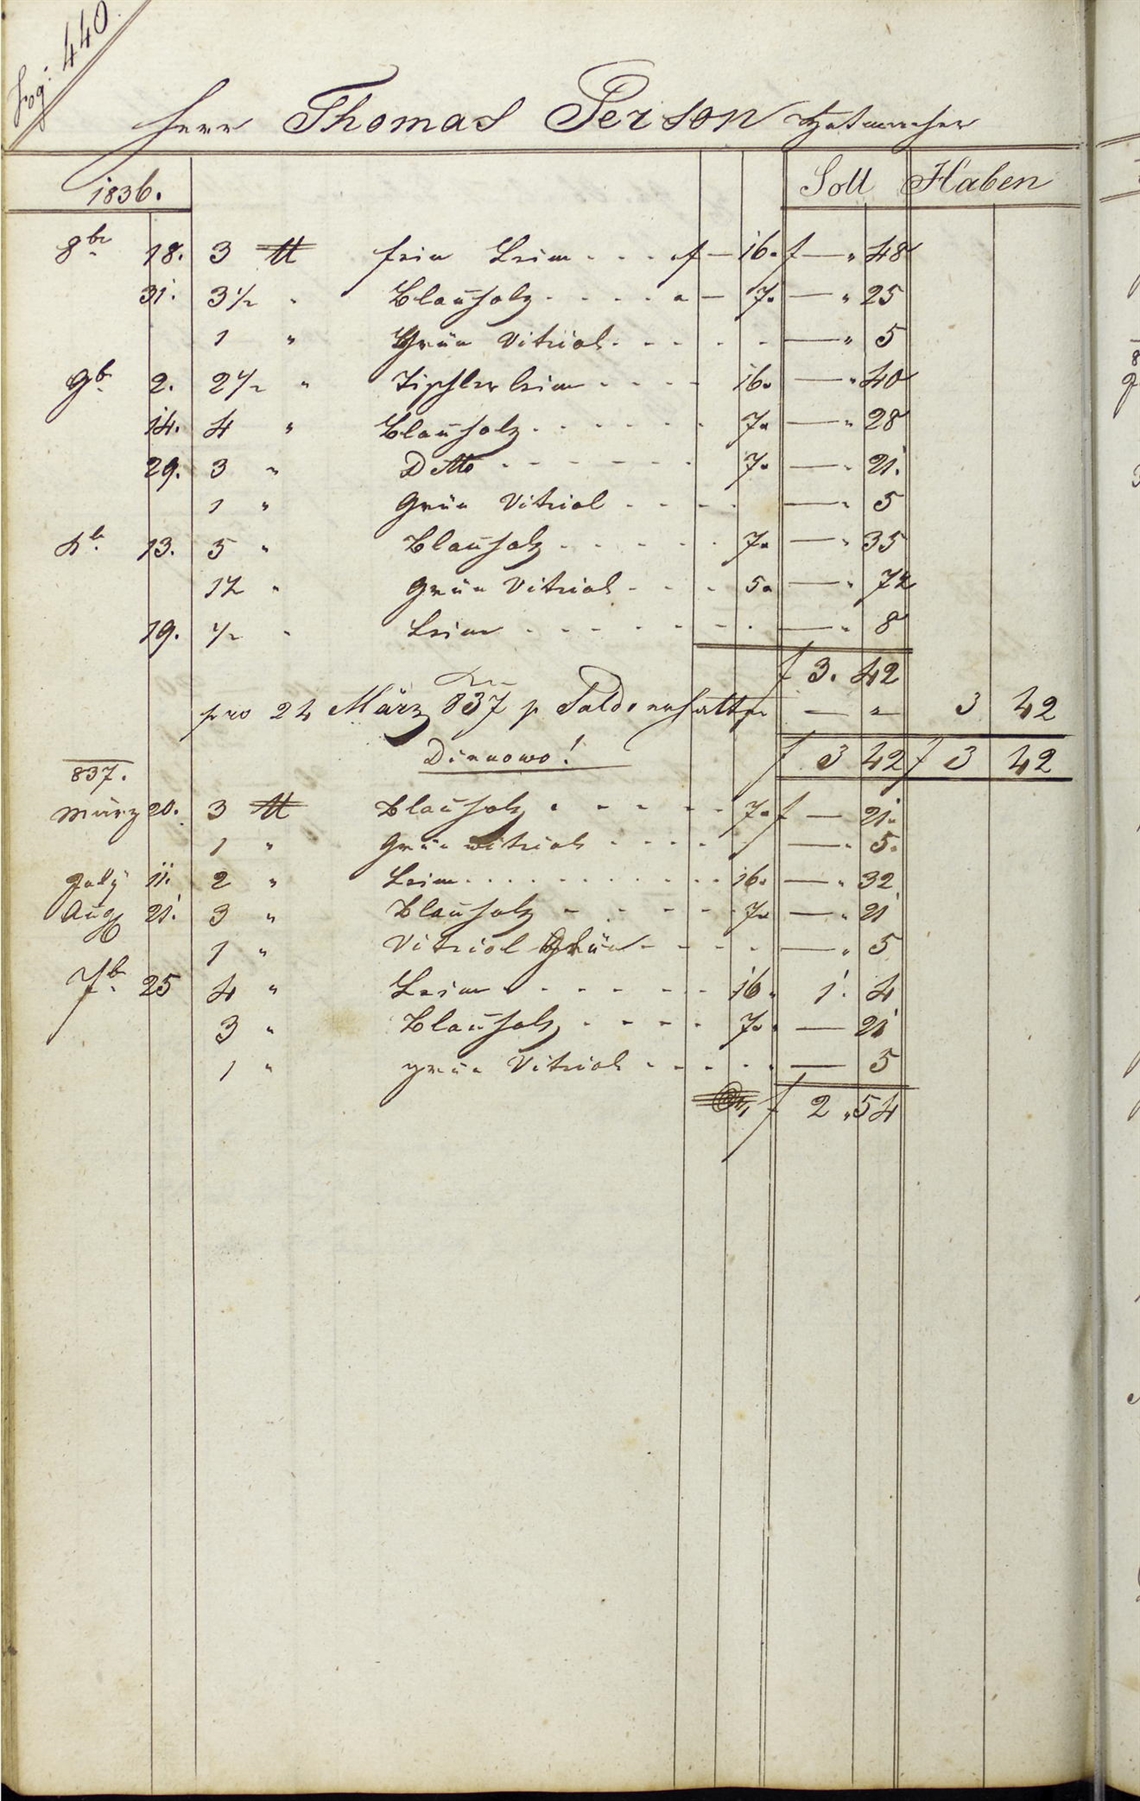 Fog: 440
Herr Thomas Person Hutmacher
1836. Soll Haben
8br 18. 3 ℔ fein Leim . . . f — 16. f — " 48
31. 3 1/2 " Blauholz . . . . " — 7. — " 25
1 " Grün Vitriol . . . . . — " 5
9b 2. 2 1/2 " Tischlerleim . . . . 16. — " 40
14. 4 " Blauholz . . . . . . 7. — " 28
29. 3 " Detto . . . . . . . 7. — " 21.
1 " Grün Vitriol . . . . — " 5
Xb. 13. 5 " Blauholz . . . . . . 7. — " 35
12 " Grün Vitriol . . . 5. — "
19. 1/2 " Leim . . . . . . . . — " 8
f 3. 42
pro 24 März 837 p Saldo erhalten — " 3 42
Dinuovo! f 3 42 f 3 42
837.
März 20. 3 ℔ Blauholz . . . . . . 7. f — 21.
1 " Grün vitriol . . . . — " 5.
July 11. 2 " Leim . . . . . . . . . . . 16. — " 32
Aug 21. 3 " Blauholz . . . . . 7. — " 21
1 " Vitriol Grün . . . . — " 5
7b. 25 4 " Leim . . . . . . . 16. 1. 4
3 " Blauholz . . . . . 7. — 21
1 " grün Vitriol . . . . . — 5
f 2 " 54